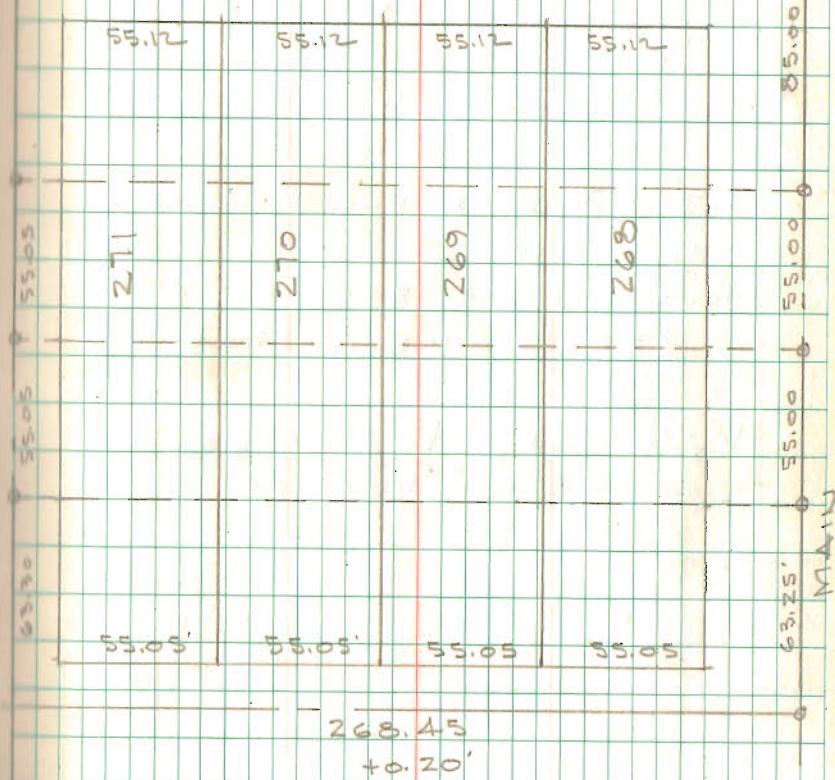 55.12 55.12 55.12 55.12
85.00
55.05
271 270 269 268
55.00
55.05
55.00
MAIN
63.30
63.25'
55.05' 55.05' 55.05 55.05
268.45
+0.20'